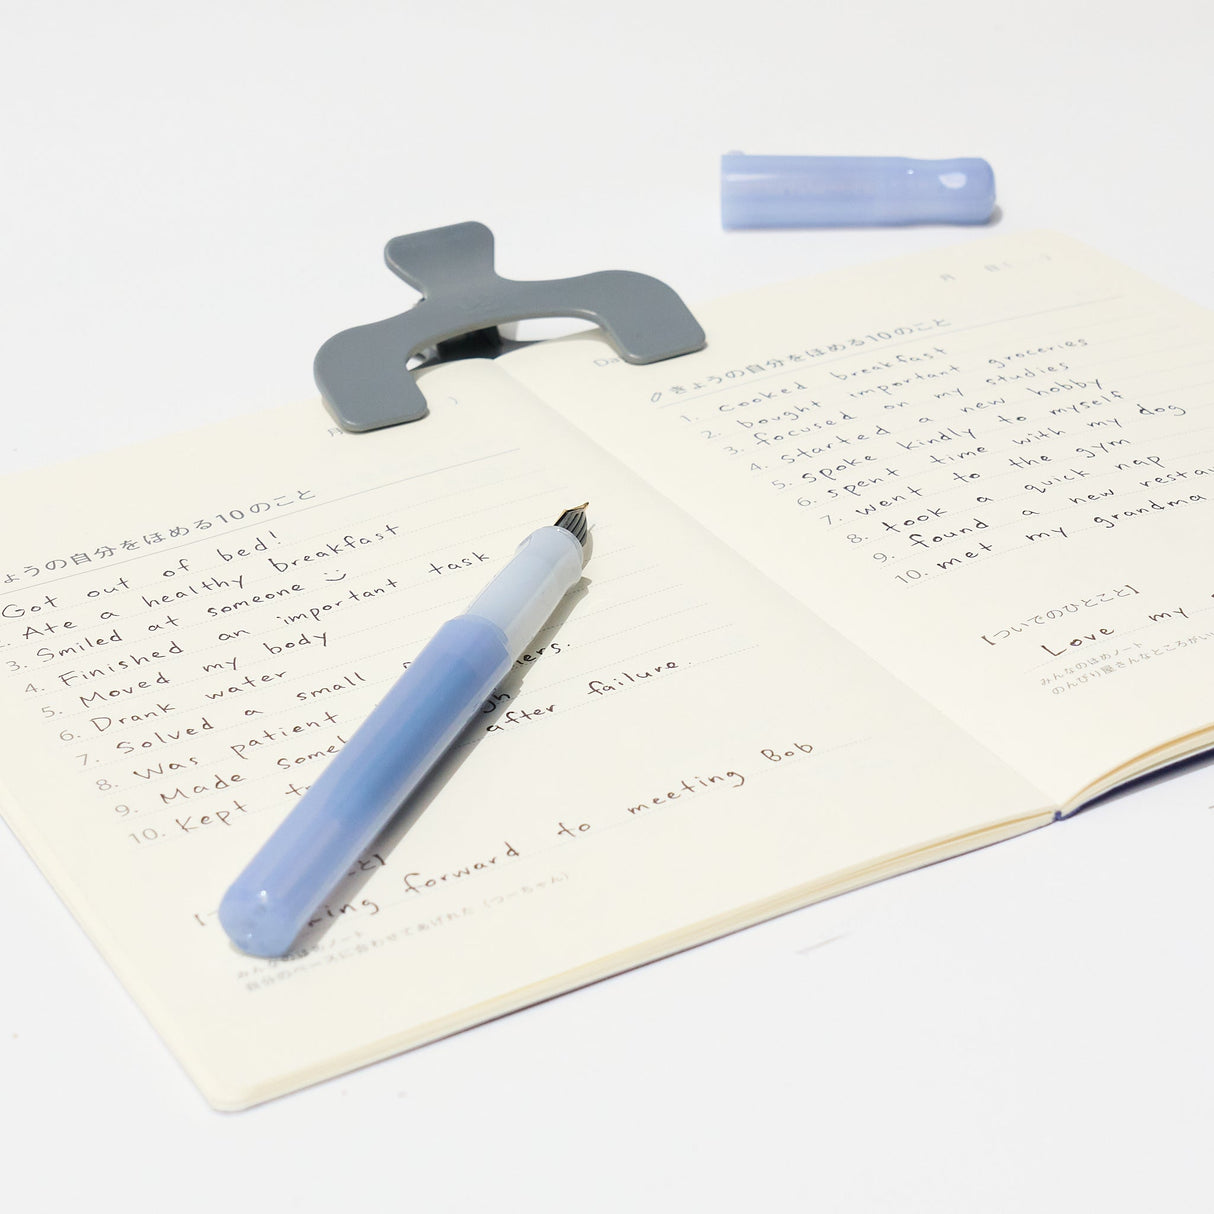 月 )
ょうの自分をほめる10のこと
Got out of bed!
Ate a healthy breakfast
3. Smiled at someone
4. Finished an important task
5. Moved my body
6. Drank water
7. Solved a small
8. Was patient
9. Made
10. Kept after failure.
forward to meeting Bob
みんなのほめノート
自分のペースに合わせてあげれた (つーちゃん)
月 日
きょうの自分をほめる10のこと
1. Cooked breakfast
2. bought important groceries
3. focused on my studies
4. Started a new hobby
5. Spoke kindly to myself
6. Spent time with my dog
7. went to the gym
8. took a quick nap
9. found a new
10. met my grandma
【ついでのひとこと】
Love my
みんなのほめノート
のんびり屋さんなところがい